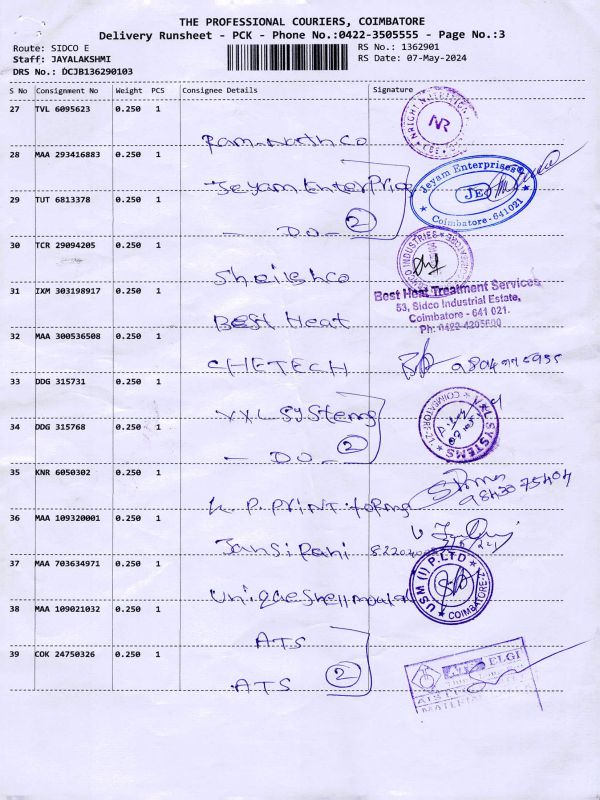 THE PROFESSIONAL COURIERS, COIMBATORE
Delivery Runsheet - PCK - Phone No.:0422-3505555 - Page No.:3
Route: SIDCO E
Staff: JAYALAKSHMI
DRS No.: DCJB136290103
RS No.: 1362901
RS Date: 07-May-2024
S No Consignment No Weight PCS Consignee Details Signature
27 TVL 6095623 0.250 1
28 MAA 293416883 0.250 1
Jeyam Enterprise
Jeyam Enterprises
JE
Coimbatore - 641 021
29 TUT 6813378 0.250 1
- DO - 2
30 TCR 29094205 0.250 1
31 IXM 303198917 0.250 1
Best Heat
Best Heat Treatment Services
53, Sidco Industrial Estate,
Coimbatore - 641 021.
Ph: 0422-4205600
32 MAA 300536508 0.250 1
CHETECH
33 DDG 315731 0.250 1
VXL Systems
V X L SYSTEMS
34 DDG 315768 0.250 1
- DO - 2
35 KNR 6050302 0.250 1
K. P. Print forms
36 MAA 109320001 0.250 1
Jansi Rani
37 MAA 703634971 0.250 1
Unique Shell mould
USM (I) P.LTD
COIMBATORE-21
38 MAA 109021032 0.250 1
ATS
39 COK 24750326 0.250 1
ATS 2
ATS ELGI